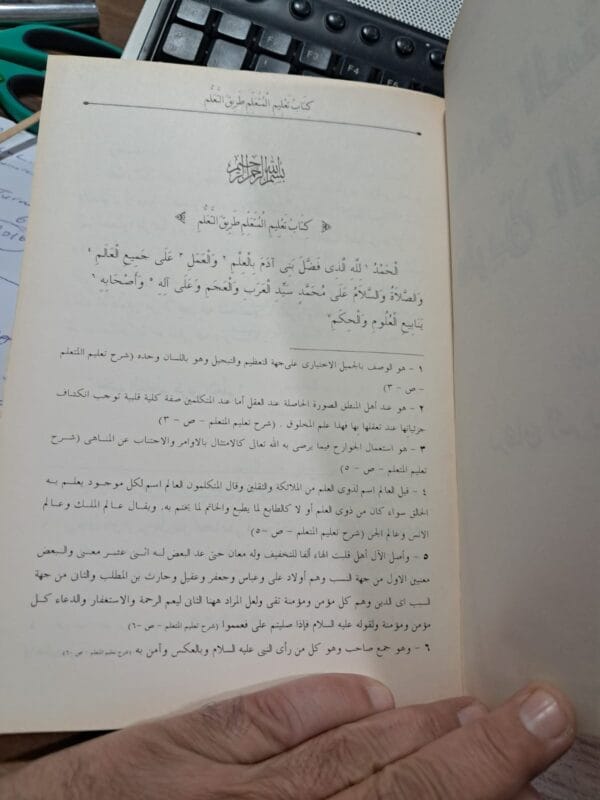 كِتَابُ تَعْلِيمِ الْمُتَعَلِّمِ طَرِيقَ التَّعَلُّمِ
بسم الله الرحمن الرحيم
﴿ كِتَابُ تَعْلِيمِ الْمُتَعَلِّمِ طَرِيقَ التَّعَلُّمِ ﴾
اَلْحَمْدُ ١ لِلّٰهِ الَّذِى فَضَّلَ بَنِى آدَمَ بِالْعِلْمِ ٢ وَالْعَمَلِ ٣ عَلَى جَمِيعِ الْعَالَمِ ٤
وَالصَّلاَةُ وَالسَّلاَمُ عَلَى مُحَمَّدٍ سَيِّدِ الْعَرَبِ وَالْعَجَمِ وَعَلَى آلِهِ ٥ وَأَصْحَابِهِ ٦
يَنَابِيعِ الْعُلُومِ وَالْحِكَمِ
١ - هو الوصف بالجميل الاختيارى على جهة التعظيم والتبجيل وهو باللسان وحده (شرح تعليم المتعلم
– ص – ٣)
٢ – هو عند أهل المنطق الصورة الحاصلة عند العقل أما عند المتكلمين صفة كلية قلبية توجب انكشاف
جزئياتها عند تعقلها بها فهذا علم المخلوق . (شرح تعليم المتعلم – ص – ٣)
٣ – هو استعمال الجوارح فيما يرضى به الله تعالى كالامتثال بالاوامر والاجتناب عن المناهى (شرح
تعليم المتعلم – ص – ٥)
٤ – قيل العالم اسم لذوى العلم من الملائكة والثقلين وقال المتكلمون العالم اسم لكل موجود يعلم به
الخالق سواء كان من ذوى العلم أو لا كالطابع لما يطبع والخاتم لما يختم به. ويقال عالم الملك وعالم
الانس وعالم الجن (شرح تعليم المتعلم – ص –٥)
٥ – وأصل الآل أهل قلبت الهاء ألفا للتخفيف وله معان حتى عد البعض له اثنى عشر معنى والبعض
معنيين الاول من جهة النسب وهم أولاد على وعباس وجعفر وعقيل وحارث بن المطلب والثانى من جهة
السبب اى الدين وهم كل مؤمن ومؤمنة تقى ولعل المراد ههنا الثانى ليعم الرحمة والاستغفار والدعاء كل
مؤمن ومؤمنة ولقوله عليه السلام فإذا صليتم على فعمموا (شرح تعليم المتعلم – ص –٦)
٦ – وهو جمع صاحب وهو كل من رأى النبى عليه السلام وبالعكس وآمن به (شرح تعليم المتعلم – ص –٦)
F4
F6